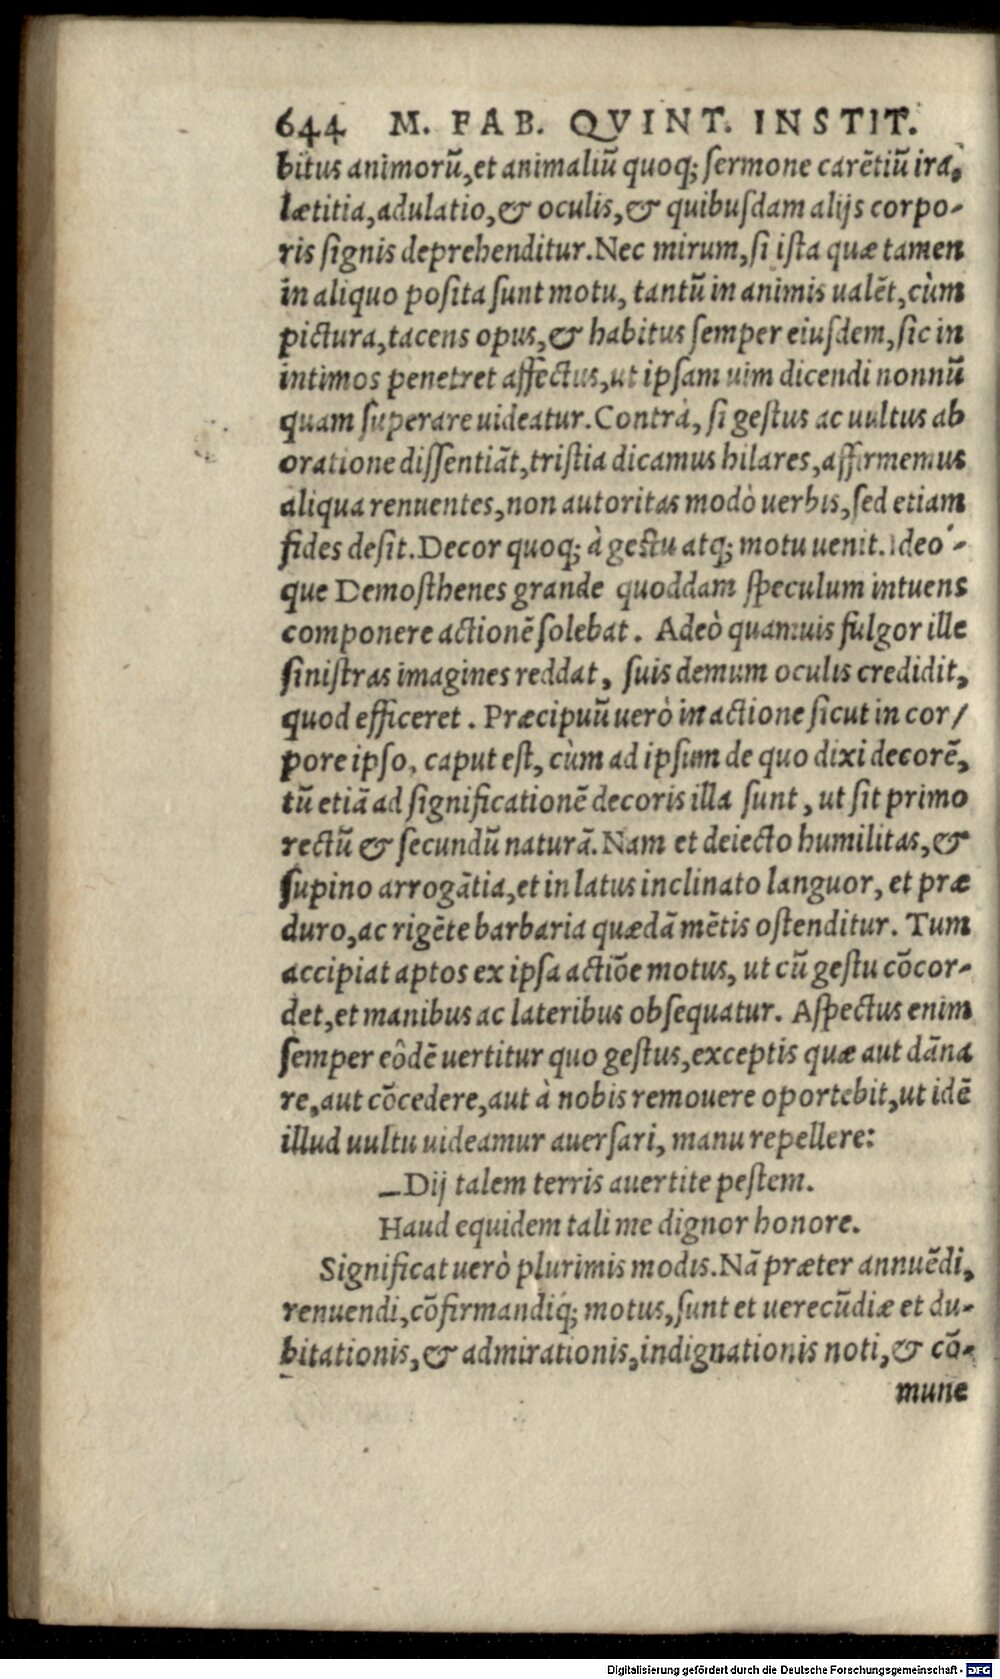 644 M. FAB. QVINT. INSTIT.
bitus animorũ, et animaliũ quoq; ſermone carẽtiũ ira,
lætitia, adulatio, & oculis, & quibuſdam alijs corpo-
ris ſignis deprehenditur. Nec mirum, ſi iſta quæ tamen
in aliquo poſita ſunt motu, tantũ in animis ualẽt, cùm
pictura, tacens opus, & habitus ſemper eiuſdem, ſic in
intimos penetret affectus, ut ipſam uim dicendi nonnũ
quam ſuperare uideatur. Contrà, ſi geſtus ac uultus ab
oratione diſſentiãt, triſtia dicamus hilares, affirmemus
aliqua renuentes, non autoritas modò uerbis, ſed etiam
fides deſit. Decor quoq; à geſtu atq; motu uenit. Ideo´-
que Demoſthenes grande quoddam ſpeculum intuens
componere actionẽ ſolebat. Adeò quamuis fulgor ille
ſiniſtras imagines reddat, ſuis demum oculis credidit,
quod efficeret. Præcipuũ uerò in actione ſicut in cor/
pore ipſo, caput eſt, cùm ad ipſum de quo dixi decorẽ,
tũ etiã ad ſignificationẽ decoris illa ſunt, ut ſit primo
rectũ & ſecundũ naturã. Nam et deiecto humilitas, &
ſupino arrogãtia, et in latus inclinato languor, et præ
duro, ac rigẽte barbaria quædã mẽtis oſtenditur. Tum
accipiat aptos ex ipſa actiõe motus, ut cũ geſtu cõcor-
det, et manibus ac lateribus obſequatur. Aſpectus enim
ſemper eôdẽ uertitur quo geſtus, exceptis quæ aut dãna
re, aut cõcedere, aut à nobis remouere oportebit, ut idẽ
illud uultu uideamur auerſari, manu repellere:
—Dij talem terris auertite peſtem.
Haud equidem tali me dignor honore.
Significat uerò plurimis modis. Nã præter annuẽdi,
renuendi, cõfirmandiq́; motus, ſunt et uerecũdiæ et du-
bitationis, & admirationis, indignationis noti, & cõ-
mune
Digitalisierung gefördert durch die Deutsche Forschungsgemeinschaft - DFG